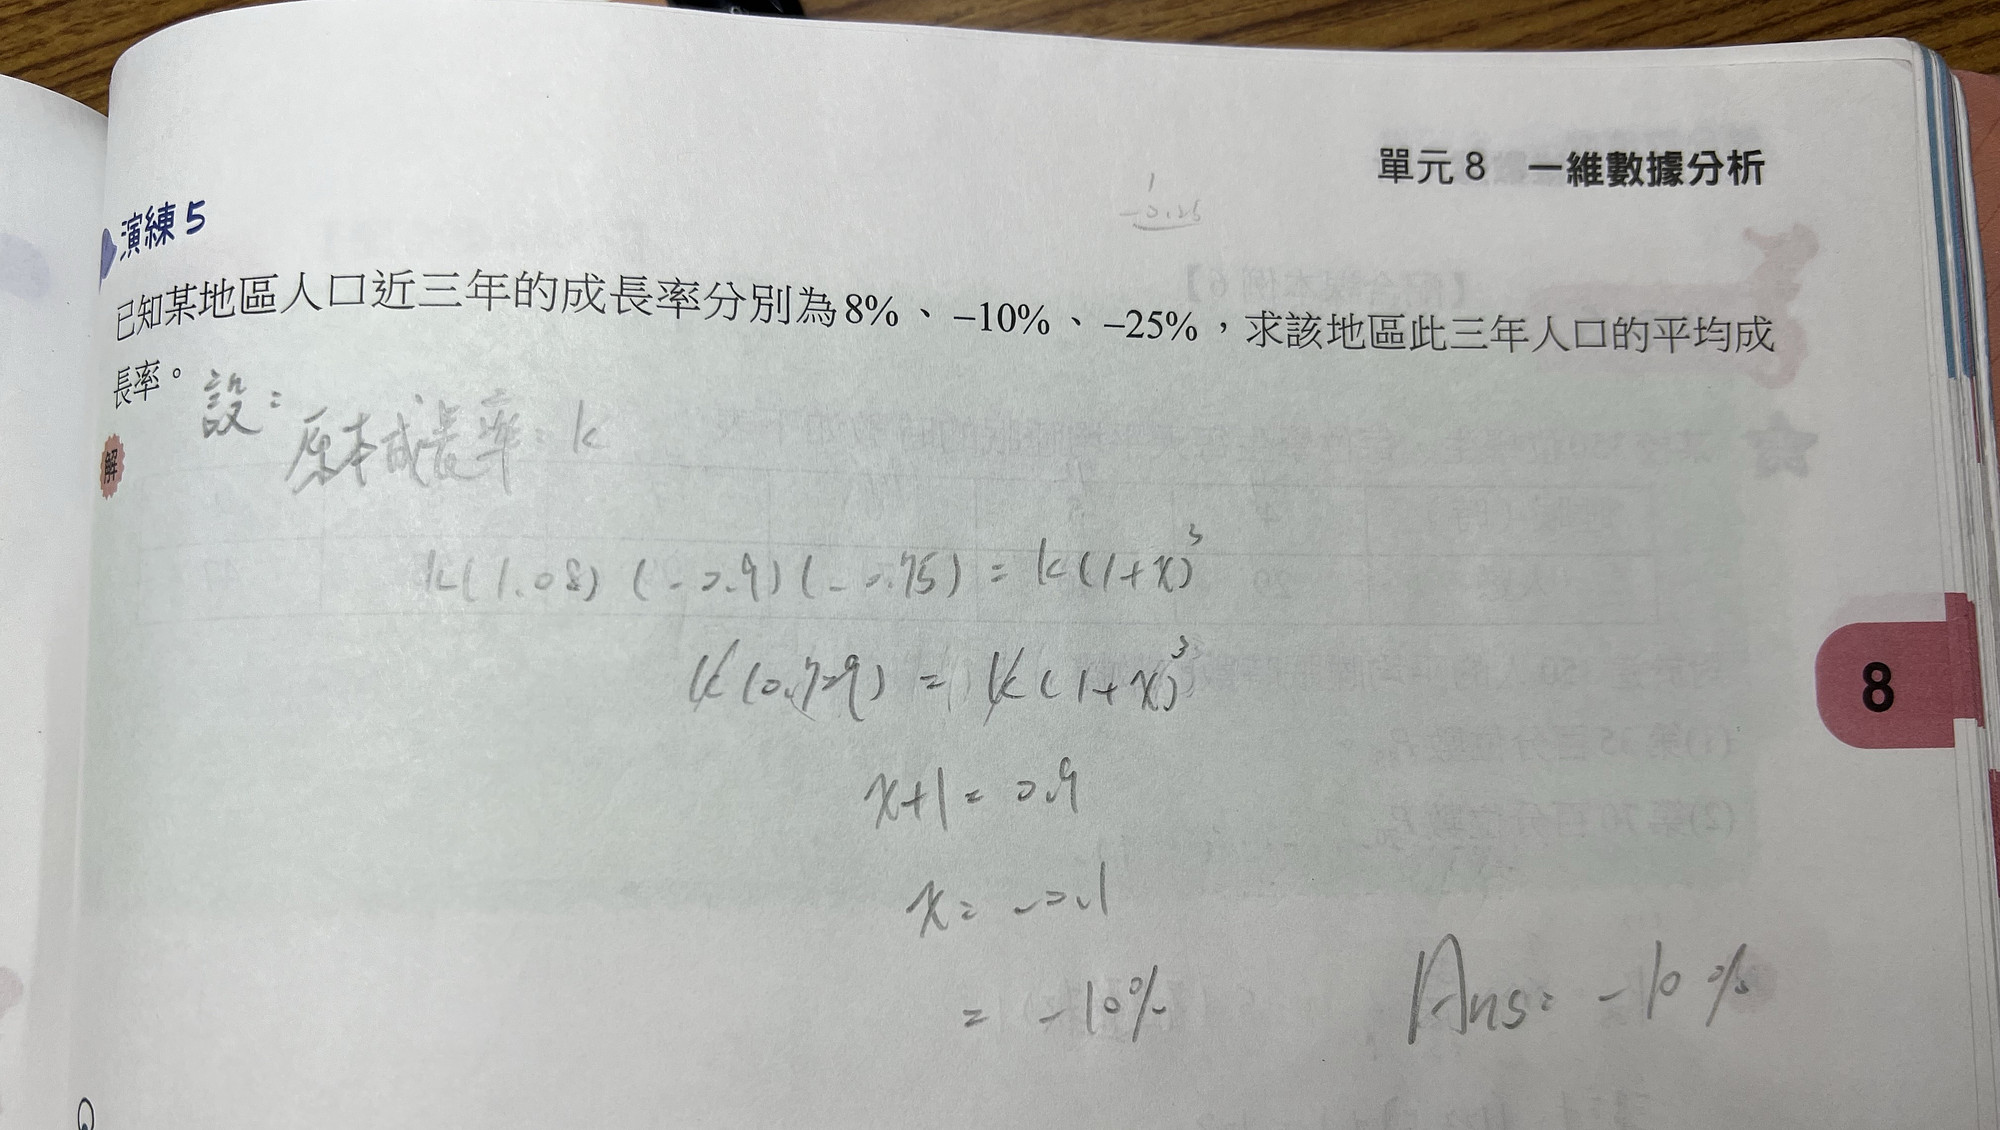 單元 8 一維數據分析
1
-0.25
演練 5
已知某地區人口近三年的成長率分別為 8%、–10%、–25%,求該地區此三年人口的平均成
長率。
設:
原本成長率:k
解
k(1.08)(-0.9)(-0.75) = k(1+x)³
k(0.729) = k(1+x)³
x+1 = 0.9
8
x = -0.1
= -10%
Ans: -10%